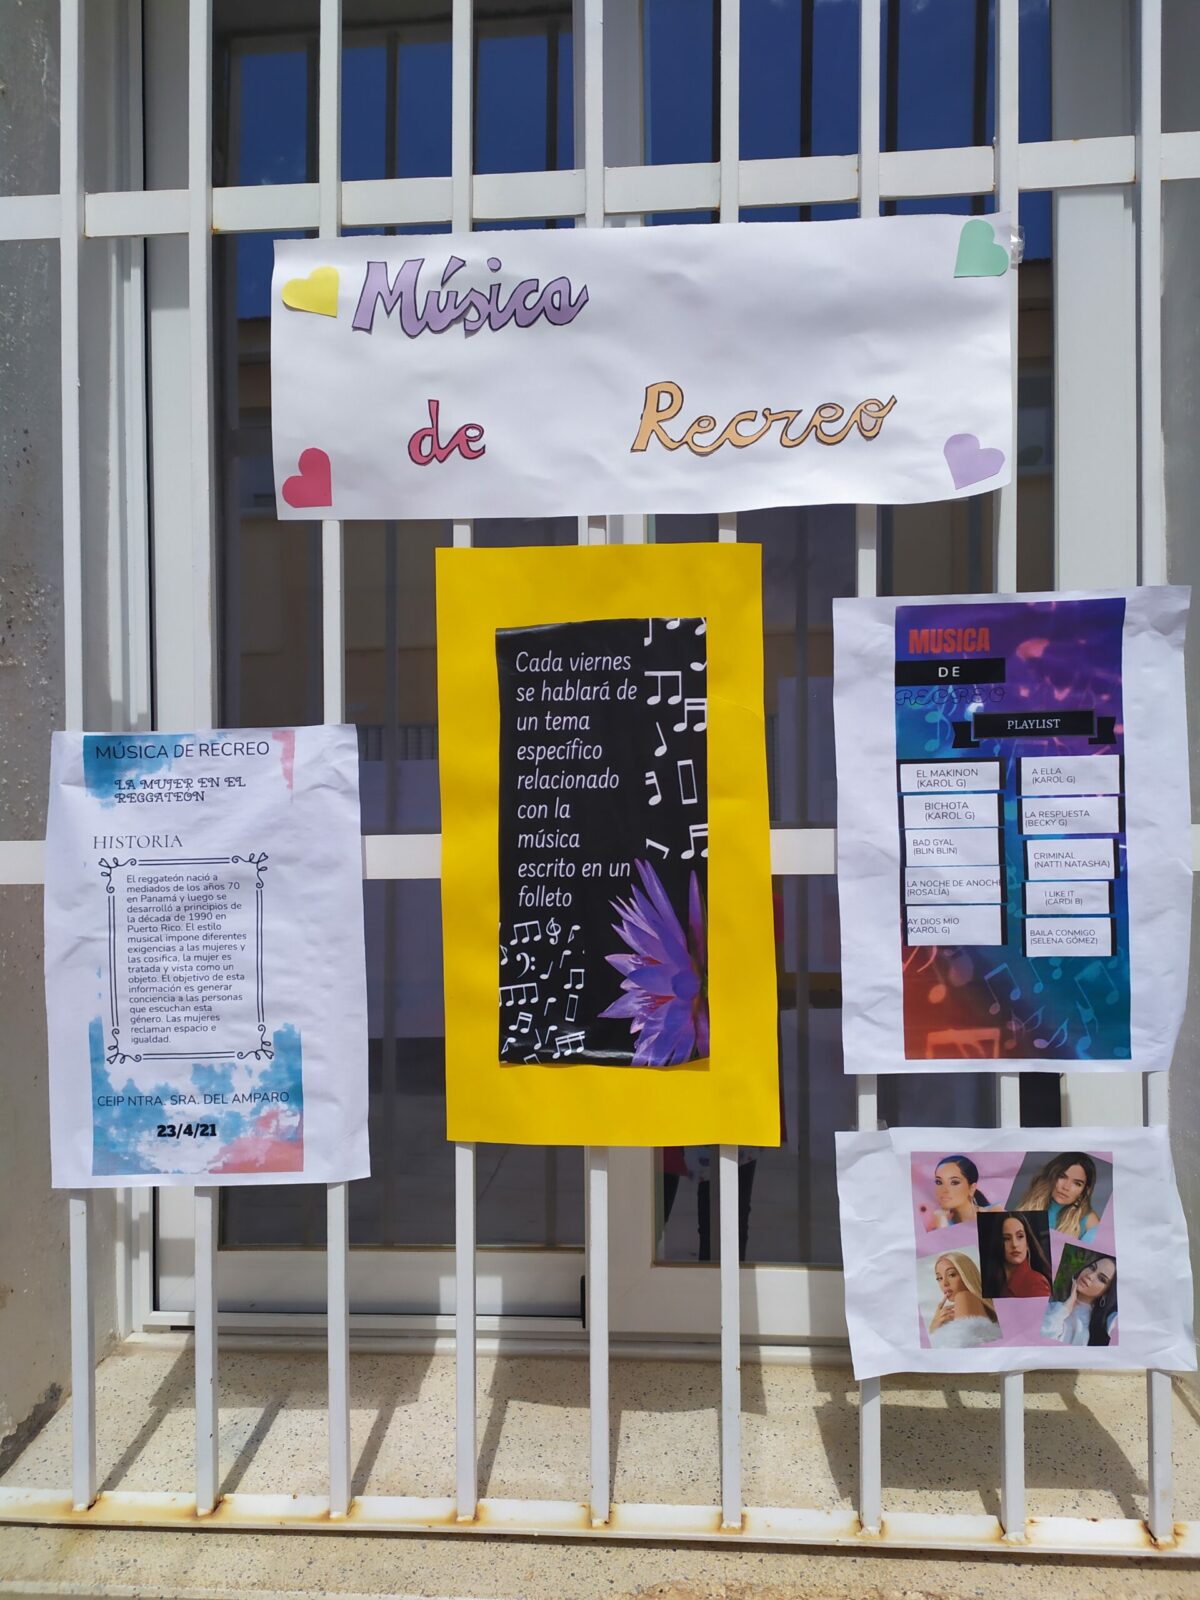 Música
de Recreo
Cada viernes
se hablará de
un tema
específico
relacionado
con la
música
escrito en un
folleto
MÚSICA DE RECREO
LA MUJER EN EL
REGGATEÓN
HISTORIA
El reggateón nació a
mediados de los años 70
en Panamá y luego se
desarrolló a principios de
la década de 1990 en
Puerto Rico. El estilo
musical impone diferentes
exigencias a las mujeres y
las cosifica, la mujer es
tratada y vista como un
objeto. El objetivo de esta
información es generar
conciencia a las personas
que escuchan esta
género. Las mujeres
reclaman espacio e
igualdad.
CEIP NTRA. SRA. DEL AMPARO
23/4/21
MUSICA
DE
RECREO
PLAYLIST
EL MAKINON
(KAROL G)
BICHOTA
(KAROL G)
BAD GYAL
(BLIN BLIN)
LA NOCHE DE ANOCHE
(ROSALÍA)
AY DIOS MIO
(KAROL G)
A ELLA
(KAROL G)
LA RESPUESTA
(BECKY G)
CRIMINAL
(NATTI NATASHA)
I LIKE IT
(CARDI B)
BAILA CONMIGO
(SELENA GÓMEZ)